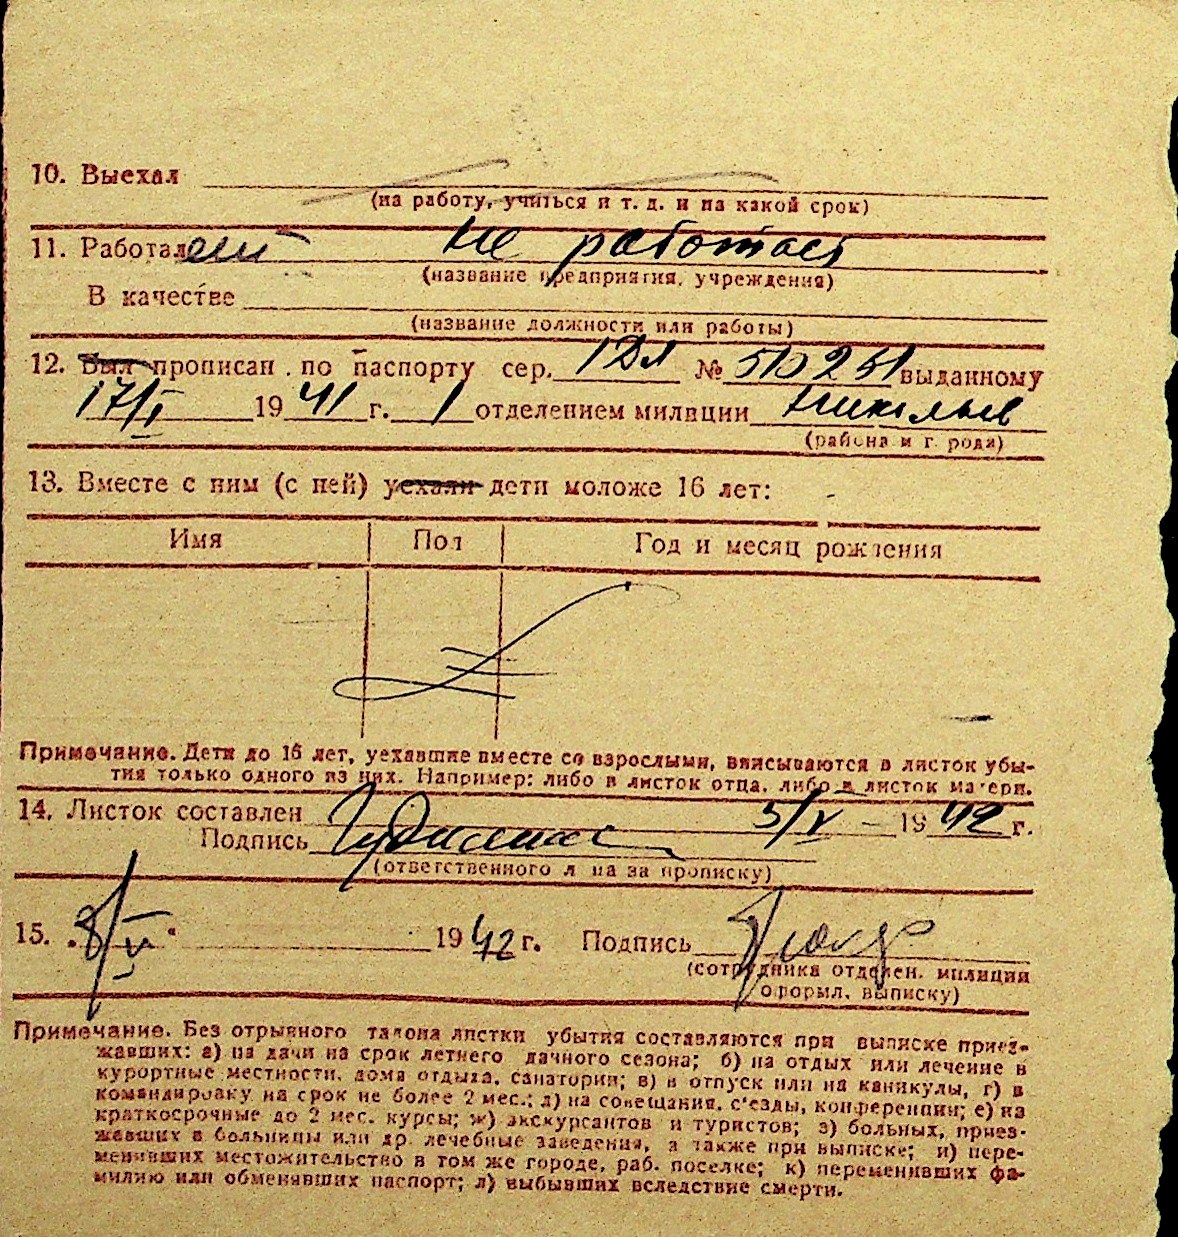 10. Выехал
(на работу, учиться и т. д. и на какой срок)
11. Работал не работает
(название предприятия, учреждения)
В качестве
(название должности или работы)
12. Был прописан по паспорту сер. № 510251 выданному
17/I 1941 г. 1 отделением милиции
(района и города)
13. Вместе с ним (с ней) уехали дети моложе 16 лет:
Имя Пол Год и месяц рождения
Примечание. Дети до 16 лет, уехавшие вместе со взрослыми, вписываются в листок убы-
тия только одного из них. Например: либо в листок отца, либо в листок матери.
14. Листок составлен 5/V - 1942 г.
Подпись
(ответственного лица за прописку)
15. „8/V“ 1942 г. Подпись
(сотрудника отделен. милиции
оформл. выписку)
Примечание. Без отрывного талона листки убытия составляются при выписке приез-
жавших: а) на дачи на срок летнего дачного сезона; б) на отдых или лечение в
курортные местности, дома отдыха, санатории; в) в отпуск или на каникулы, г) в
командировку на срок не более 2 мес.; д) на совещания, с'езды, конференции; е) на
краткосрочные до 2 мес. курсы; ж) экскурсантов и туристов; з) больных, приез-
жавших в больницы или др. лечебные заведения, а также при выписке; и) пере-
менивших местожительство в том же городе, раб. поселке; к) переменивших фа-
милию или обменявших паспорт; л) выбывших вследствие смерти.